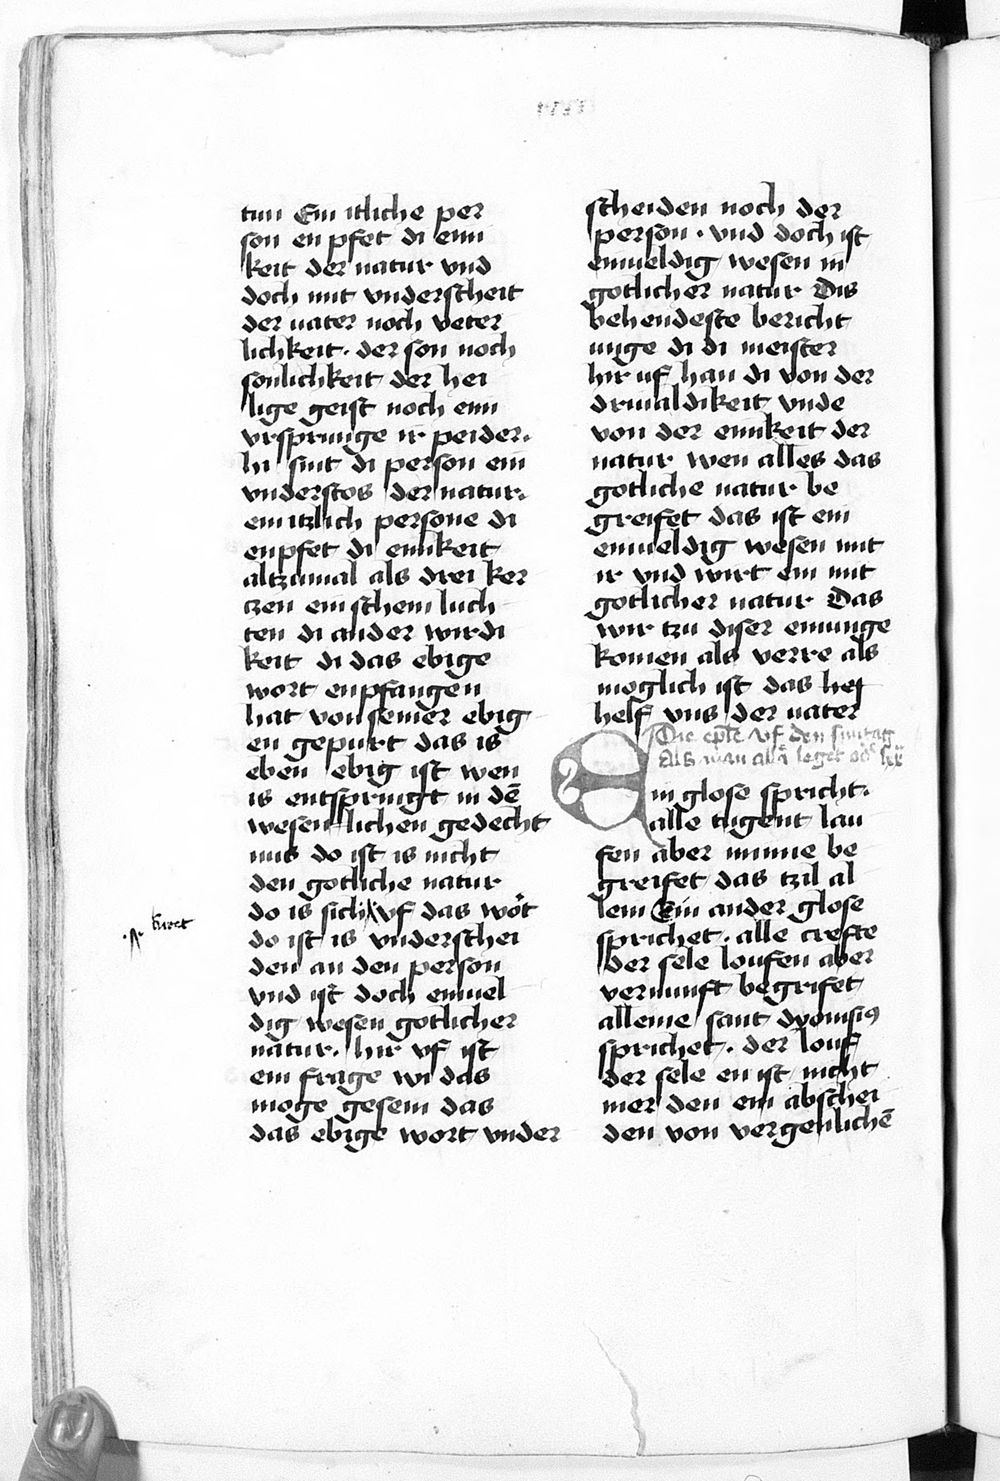 tun Ein itliche per
son en pfet di eini
keit der natur vnd
doch mit vnderscheit
der uater noch veter
lichkeit · der son noch
sonlichkeit der hei
lige geist noch eini
vrsprunge ir peider ·
hi sint di person ein
vnderstos der natur ·
ein itzlich persone di
enpfet di einikeit
altzumal als drei ker
czen ein schein luch
ten di ander wirdi
keit di das ebige
wort enpfangen
hat von seiner ebig
en gepurt das is
eben ebig ist wen
is entspringt in dē
wesen lichen gedecht
nus do ist is nicht
den gotliche natur
do is sich vf das wort
kiret
do ist is vnderschei
den an den person
vnd ist doch einuel
dig wesen gotlicher
natur · hir vf ist
ein frage wi das
moge gesein das
das ebige wort vnder
scheiden noch der
person · vnd doch ist
einueldig wesen in
gotlicher natur Dis
behendeste bericht
unge di di meister
hir uf han di von der
driualdikeit vnde
von der einikeit der
natur wen alles das
gotliche natur be
greifet das ist ein
einueldig wesen mit
ir vnd wirt ein mit
gotlicher natur Das
wir tzu diser einunge
komen als verre als
moglich ist das hej
helf vns der uater
Die eple vf den suntag
Als man leget
Ein glose spricht ·
alle tugent lau
fen aber minne be
greifet das tzil al
lein Ein ander glose
sprichet · alle crefte
der sele loufen aber
vernunft begrifet
alleine sant dyonisiꝰ
sprichet · der louf
der sele en ist nicht
mer den ein abschei
den von vergenlichē